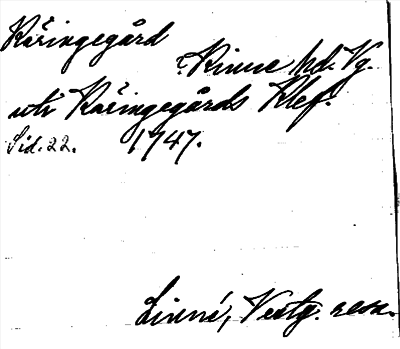 Råringegård
Kinne hd. Vg.
uti Råringegårds Klef.
Sid. 22. 1747.
Linné, Vestg. resa.